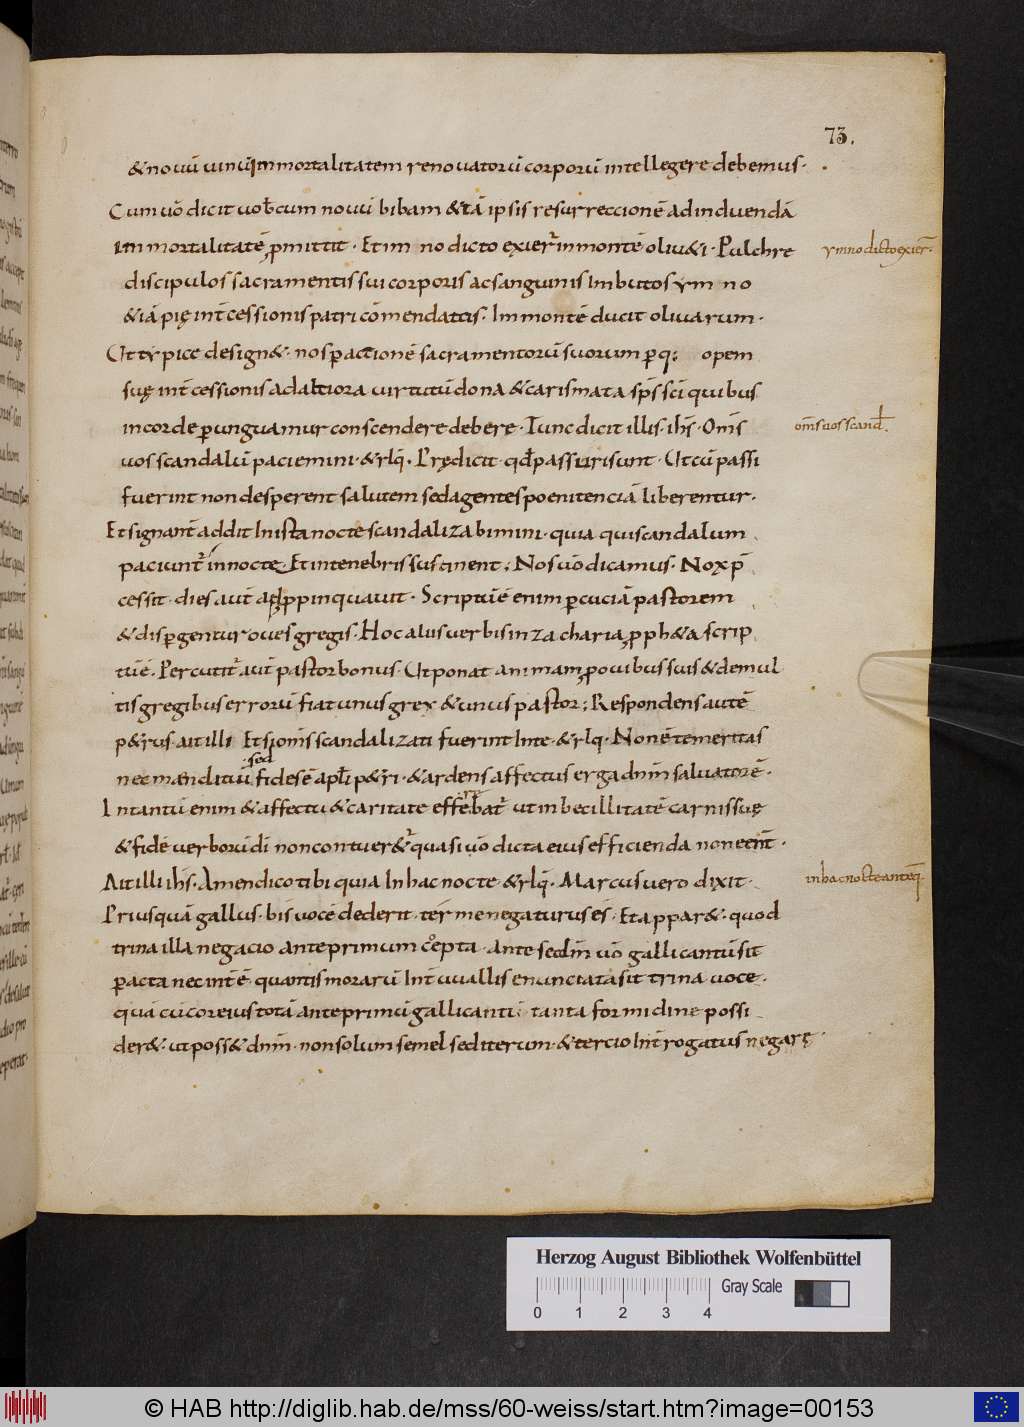 73.
& nouū uinū inmortalitatem renouatorū corporū intellegere debemus·
Cum uō dicit uob̄cum nouū bibam & tā ipsis resurreccionē ad induendā
inmortalitatē p̱mittit· Et imno dicto exier̄ inmontē oliu&i· Pulchre
ymno dicto exier̄·
discipulos sacramentis sui corporis ac sanguinis imbutos ymno
& iā pię int̄cessionis patri cōmendatis· Immontē ducit oliuarum·
Ut typice design&· nos ꝑ accionē sacramentorū suorum ꝑq; opem
suę int̄cessionis ad altiora uirtutū dona & carismata sp̄s sc̄i quibus
in corde ꝑunguamur conscendere debere· Tunc dicit illis· ih̄s· Om̄s
om̄s uos scand̄·
uos scandalū paciemini· & rlq̄· Prędicit· qd̄ passuri sunt· Ut cū passi
fuerint non desperent salutem sed agentes poenitenciā liberentur·
Et signant̄ addit In ista nocte scandalizabimini· quia qui scandalum
paciunt̄ in nocte· Et in tenebris sustinent; Nos uō dicamus· Nox p̄
cessit· dies aut̄ adpropinquauit· Scriptū ē enim ꝑcuciā pastorem
& disꝑgentur oues gregis· Hoc aliis uerbis in zacharia ꝓph&a scrip
tū ē· Percutit̄ aut̄ pastor bonus· Ut ponat animam ꝓ ouibus suis & de mul
tis gregibus errorū fiat unus grex & unus pastor; Respondens autē
p&rus ait illi Et si om̄s scandalizati fuerint In te· & rlq̄· Non ē temeritas
sed
nec mendatiū fides ē apl̄i p&ri· & ardens affectus erga dn̄m saluatorē·
Intantū enim & affectu & caritate efferebat̄ ut inbecillitatē carnis suę
& fidē uerborū di non contuer&̄ quasi uō dicta eius efficienda non eēnt·
Ait illi ih̄s· Amen dico tibi quia In hac nocte & rlq̄· Marcus uero dixit·
in hac nocte anteq̄·
Priusquā gallus· bis uocē dederit· ter me negaturus es· Et appar&· quod
trina illa negacio ante primum coepta· ante secdm̄ uō galli cantū sit
ꝑacta nec int̄ ē quantis morarū Int̄uuallis enunciata sit trina uoce·
quā cū cor eius totā ante primū galli cantū tanta formidine possi
der&· ut poss& dn̄m· non solum semel sed iterum· & tercio Int̄rogatus negarę
Herzog August Bibliothek Wolfenbüttel
Gray Scale
0 1 2 3 4
© HAB http://diglib.hab.de/mss/60-weiss/start.htm?image=00153